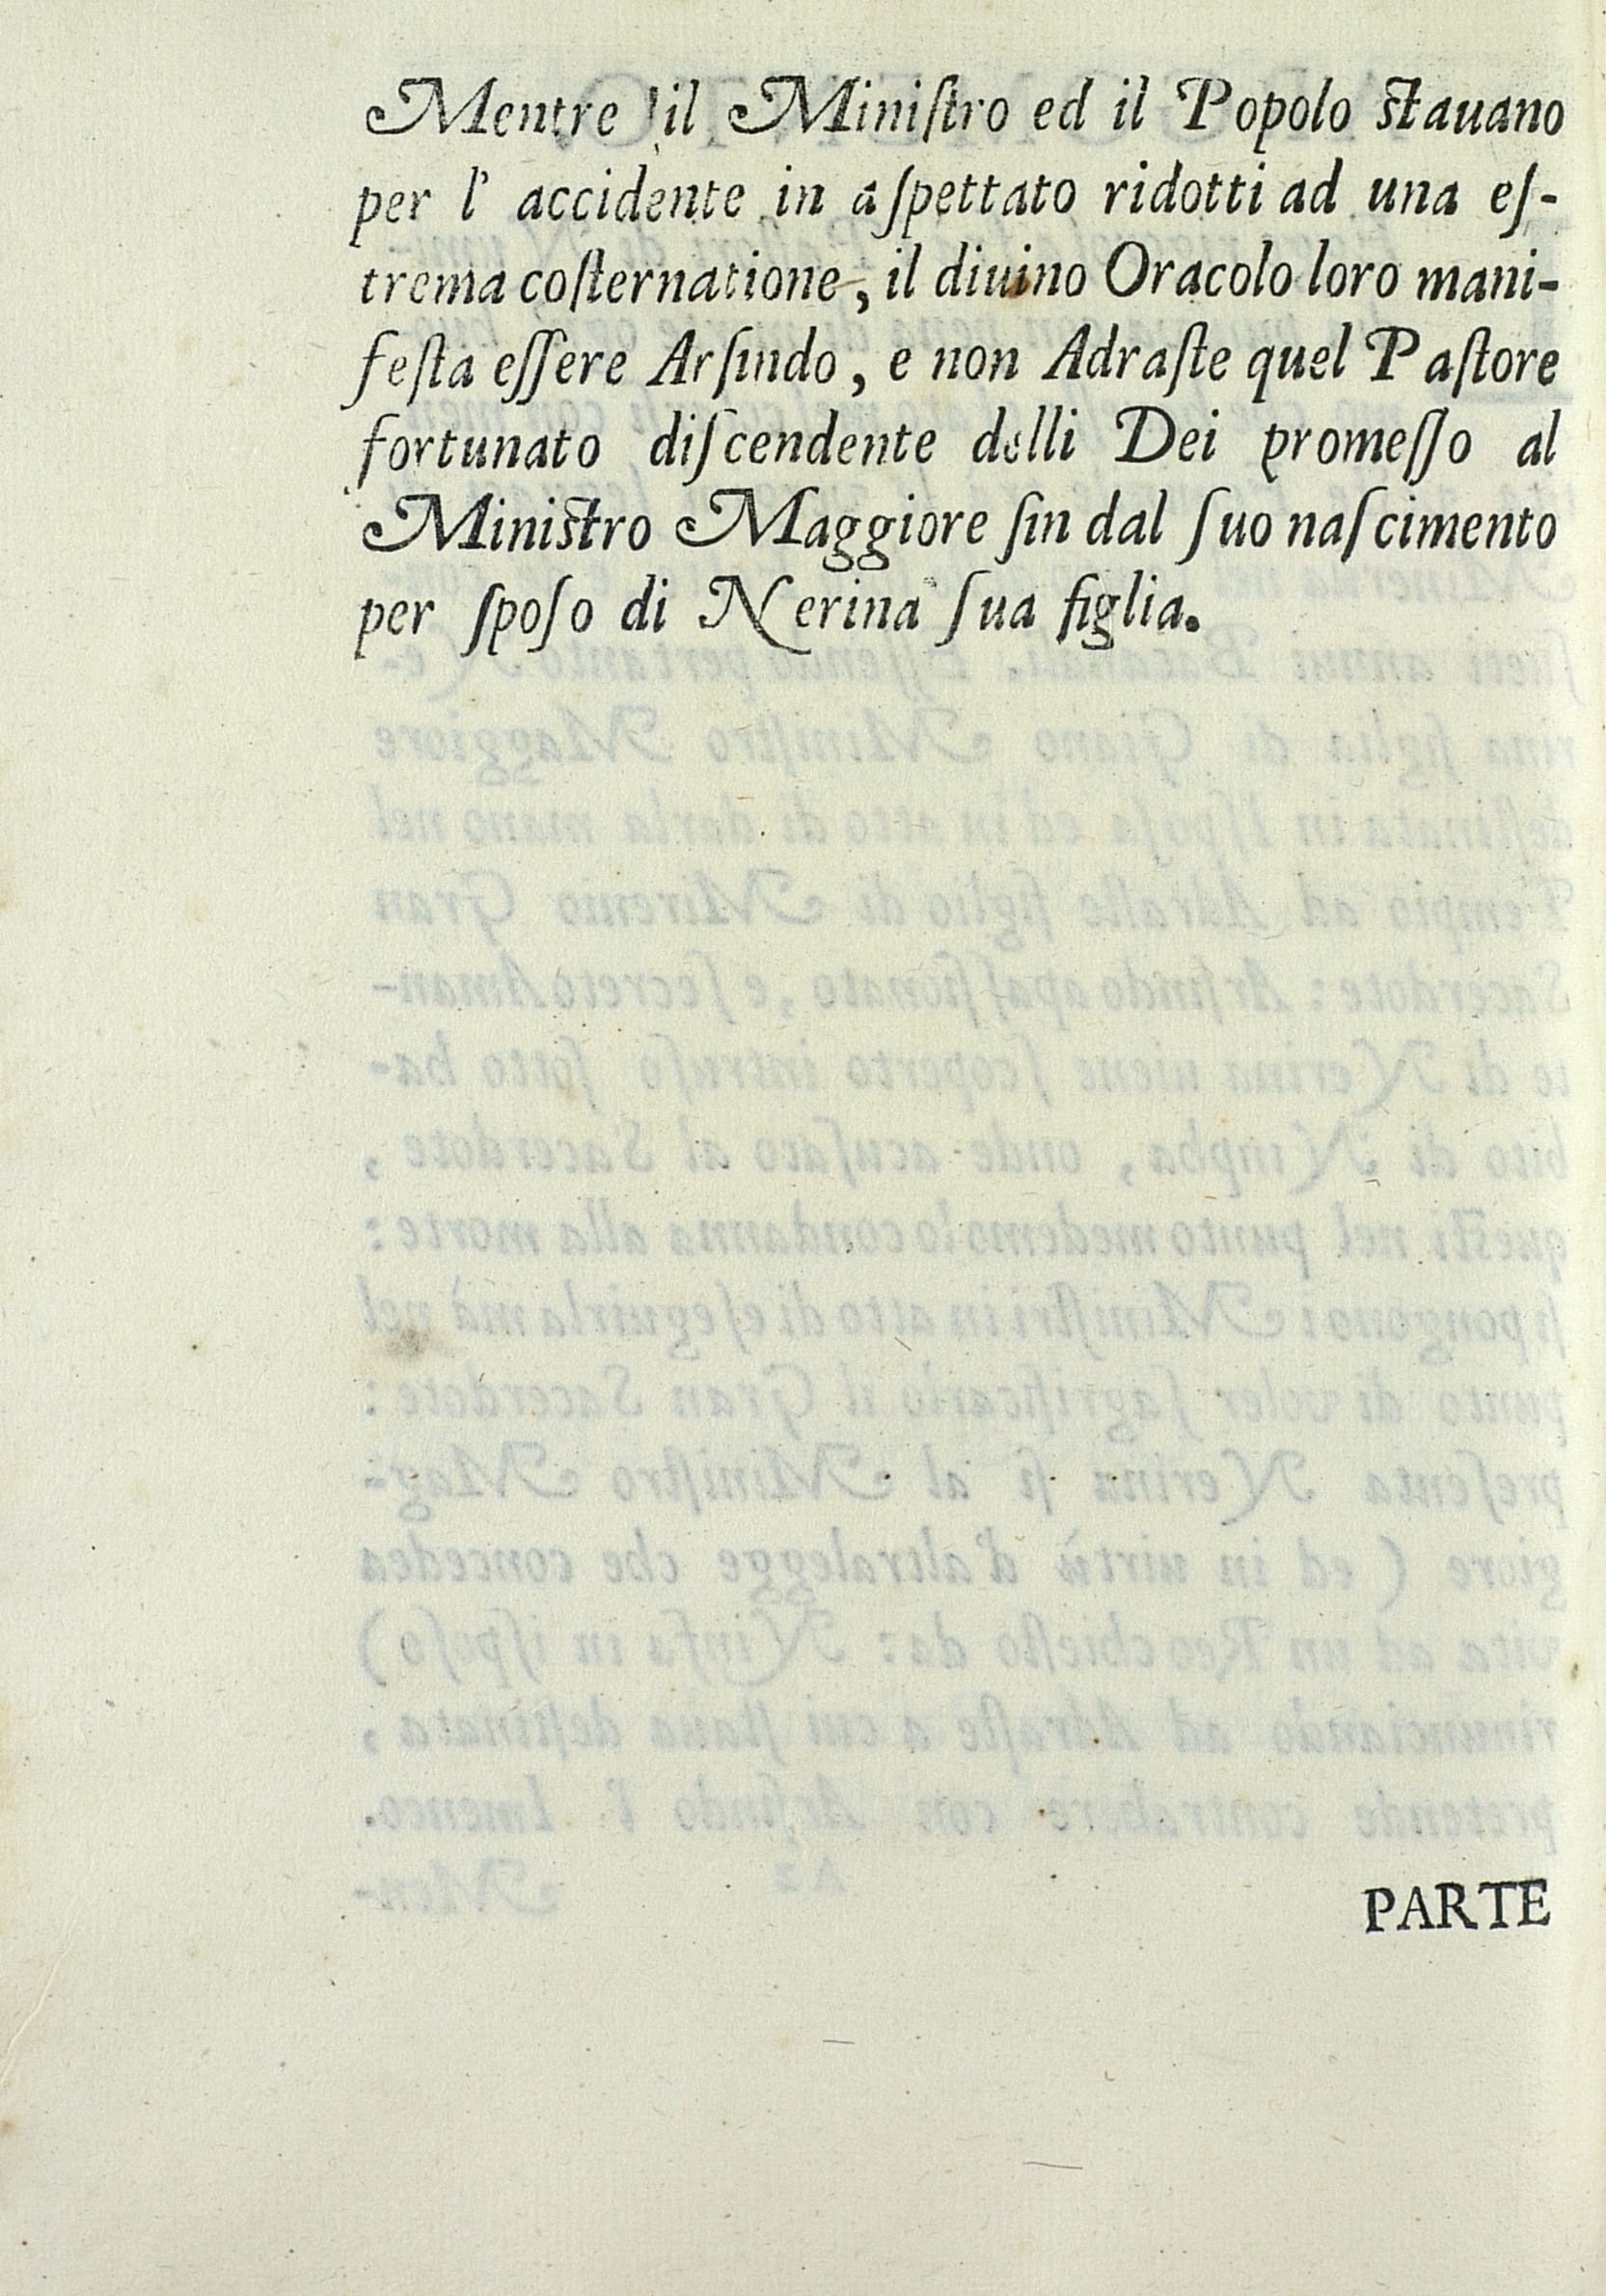 Mentre il Miniſtro ed il Popolo ſtauano
per l' accidente in aſpettato ridotti ad una eſ-
trema coſternatione, il diuino Oracolo loro mani-
feſta eſſere Arſindo, e non Adraſte quel Paſtore
fortunato diſcendente delli Dei promeſſo al
Miniſtro Maggiore ſin dal ſuo naſcimento
per ſpoſo di Nerina ſua figlia.
PARTE